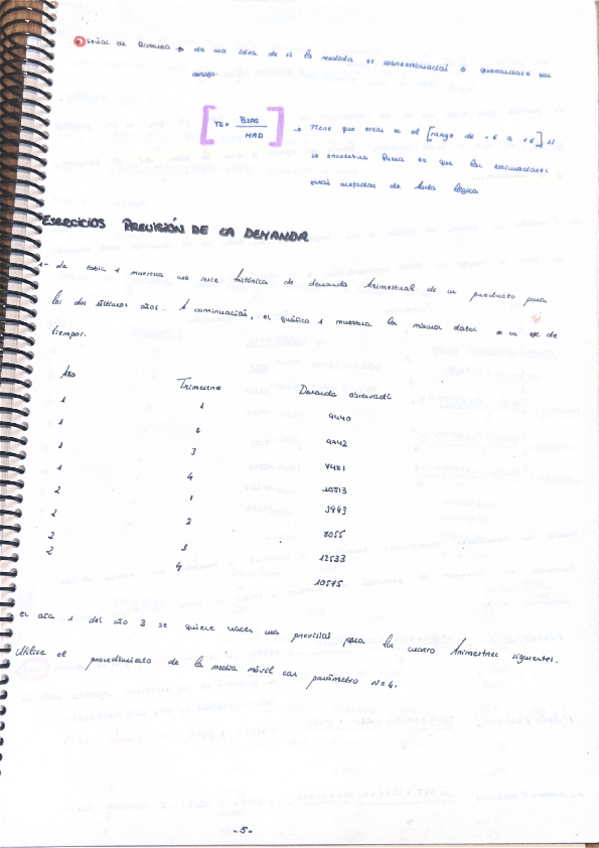 Señal de Rastreo → da una idea de si la medida es sobreestimación o quedándose por
debajo.
TS = BIAS / MAD → Tiene que estar en el [rango de -6 a +6] si
se encuentra fuera es que las estimaciones
están alejadas de toda lógica
EJERCICIOS PREVISIÓN DE LA DEMANDA
1- La tabla 1 muestra una serie histórica de demanda trimestral de un producto para
los dos últimos años. A continuación, el gráfico 1 muestra los mismos datos en un eje de
tiempos.
Año Trimestre Demanda observada
1 1
1 2
1 3
1 4 10813
2 1 3943
2 2 8055
2 3 12533
2 4 10575
El día 1 del año 3 se quiere hacer una previsión para los cuatro trimestres siguientes.
Utilice el procedimiento de la media móvil con parámetro N=4.
-5-